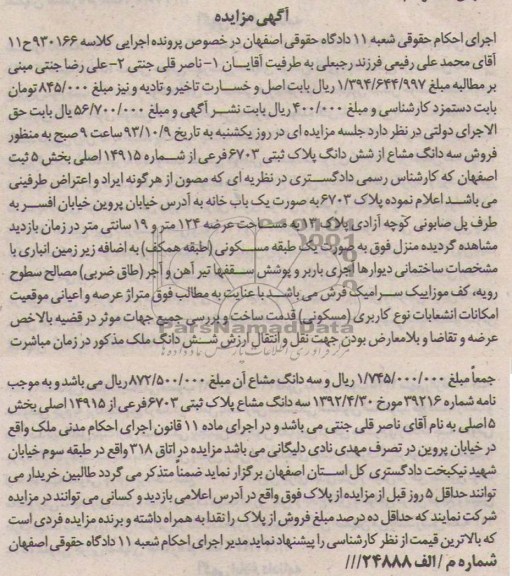 آگهی مزایده
اجرای احکام حقوقی شعبه ۱۱ دادگاه حقوقی اصفهان در خصوص پرونده اجرایی کلاسه ۹۳۰۱۶۶ح۱۱
آقای محمد علی رفیعی فرزند رجبعلی به طرفیت آقایان ۱- ناصر قلی جنتی ۲- علی رضا جنتی مبنی
بر مطالبه مبلغ ۱/۳۹۴/۶۴۴/۹۹۷ ریال بابت اصل و خسارت تاخیر و تادیه و نیز مبلغ ۸۴۵/۰۰۰ تومان
بابت دستمزد کارشناسی و مبلغ ۴۰۰/۰۰۰ ریال بابت نشر آگهی و مبلغ ۵۶/۷۰۰/۰۰۰ یال بابت حق
الاجرای دولتی در نظر دارد جلسه مزایده ای در روز یکشنبه به تاریخ ۹۳/۱۰/۹ ساعت ۹ صبح به منظور
فروش سه دانگ مشاع از شش دانگ پلاک ثبتی ۶۷۰۳ فرعی از شماره ۱۴۹۱۵ اصلی بخش ۵ ثبت
اصفهان که کارشناس رسمی دادگستری در نظریه ای که مصون از هرگونه ایراد و اعتراض طرفینی
می باشد اعلام نموده پلاک ۶۷۰۳ به صورت یک باب خانه به آدرس خیابان پروین خیابان افسر به
طرف پل صابونی کوچه آزادی پلاک ۱۳ به مساحت عرصه ۱۲۴ متر و ۱۹ سانتی متر در زمان بازدید
مشاهده گردیده منزل فوق به صورت یک طبقه مسکونی (طبقه همکف) به اضافه زیر زمین انباری با
مشخصات ساختمانی دیوارها آجری باربر و پوشش سقفها تیر آهن و آجر (طاق ضربی) مصالح سطوح
رویه، کف موزاییک سرامیک فرش می باشد با عنایت به مطالب فوق متراژ عرصه و اعیانی موقعیت
امکانات انشعابات نوع کاربری (مسکونی) قدمت ساخت و بررسی جمیع جهات موثر در قضیه بالاخص
عرضه و تقاضا و بلامعارض بودن جهت نقل و انتقال ارزش شش دانگ ملک مذکور در زمان مباشرت
جمعاً مبلغ ۱/۷۴۵/۰۰۰/۰۰۰ ریال و سه دانگ مشاع آن مبلغ ۸۷۲/۵۰۰/۰۰۰ ریال می باشد و به موجب
نامه شماره ۳۹۲۱۶ مورخ ۱۳۹۲/۴/۳۰ سه دانگ مشاع پلاک ثبتی ۶۷۰۳ فرعی از ۱۴۹۱۵ اصلی بخش
۵ اصلی به نام آقای ناصر قلی جنتی می باشد و در اجرای ماده ۱۱ قانون اجرای احکام مدنی ملک واقع
در خیابان پروین در تصرف مهدی نادی دلیگانی می باشد مزایده در اتاق ۳۱۸ واقع در طبقه سوم خیابان
شهید نیکبخت دادگستری کل استان اصفهان برگزار نماید ضمناً متذکر می گردد طالبین خریدار می
توانند حداقل ۵ روز قبل از مزایده از پلاک فوق واقع در آدرس اعلامی بازدید و کسانی می توانند در مزایده
شرکت نمایند که حداقل ده درصد مبلغ فروش از پلاک را نقدا به همراه داشته و برنده مزایده فردی است
که بالاترین قیمت از نظر کارشناسی را پیشنهاد نماید مدیر اجرای احکام شعبه ۱۱ دادگاه حقوقی اصفهان
شماره م / الف ۲۴۸۸۸///
ParsNamadData